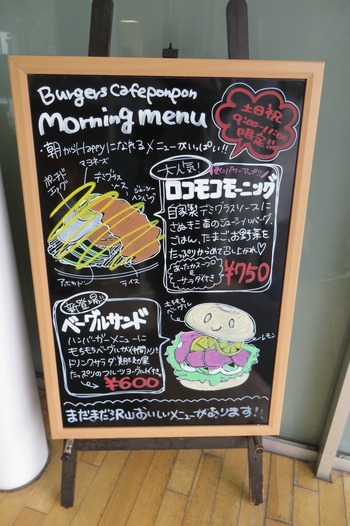 Burgers Cafeponpon
Morning menu
土日祝
9:00-11:00
限定!!
・朝からHappyになれるメニューがいっぱい!!
マヨネーズ
デミグラス
ソース
ポーチド
エッグ
ジューシー
ハンバーグ
アボカド
ライス
大人気!
ロコモコモーニング
自家製デミグラスソースに
さぬき三畜のジューシーハンバーグ。
ごはん、たまご、お野菜を
たっぷりからめて召し上がれ♡
あったかスープ&
サラダ付き
¥750
新登場!
ベーグルサンド
ハンバーガーメニューに
もちもちベーグルが仲間入り!
ドリンク サラダ
たっぷりのフルーツヨーグルト付き
¥600
もちもち
ベーグル
レモン
まだまだ沢山おいしいメニューがあります!